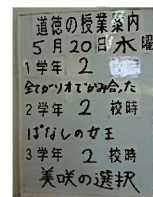 道徳の授業案内
5月20日水曜
1学年 2 校時
全てがリオでかみ合った
2学年 2 校時
ぱなしの女王
3学年 2 校時
美咲の選択